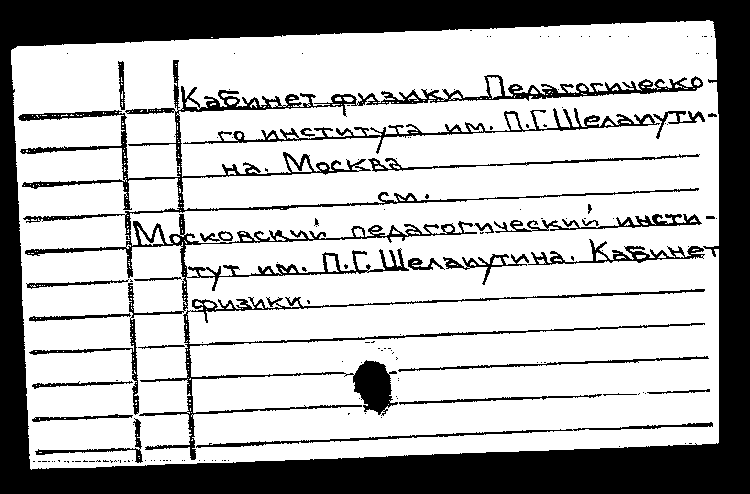 Кабинет физики Педагогическо-
го института им. П.Г.Шелапути-
на. Москва
см.
Московский педагогический инсти-
тут им. П.Г.Шелапутина. Кабинет
физики.